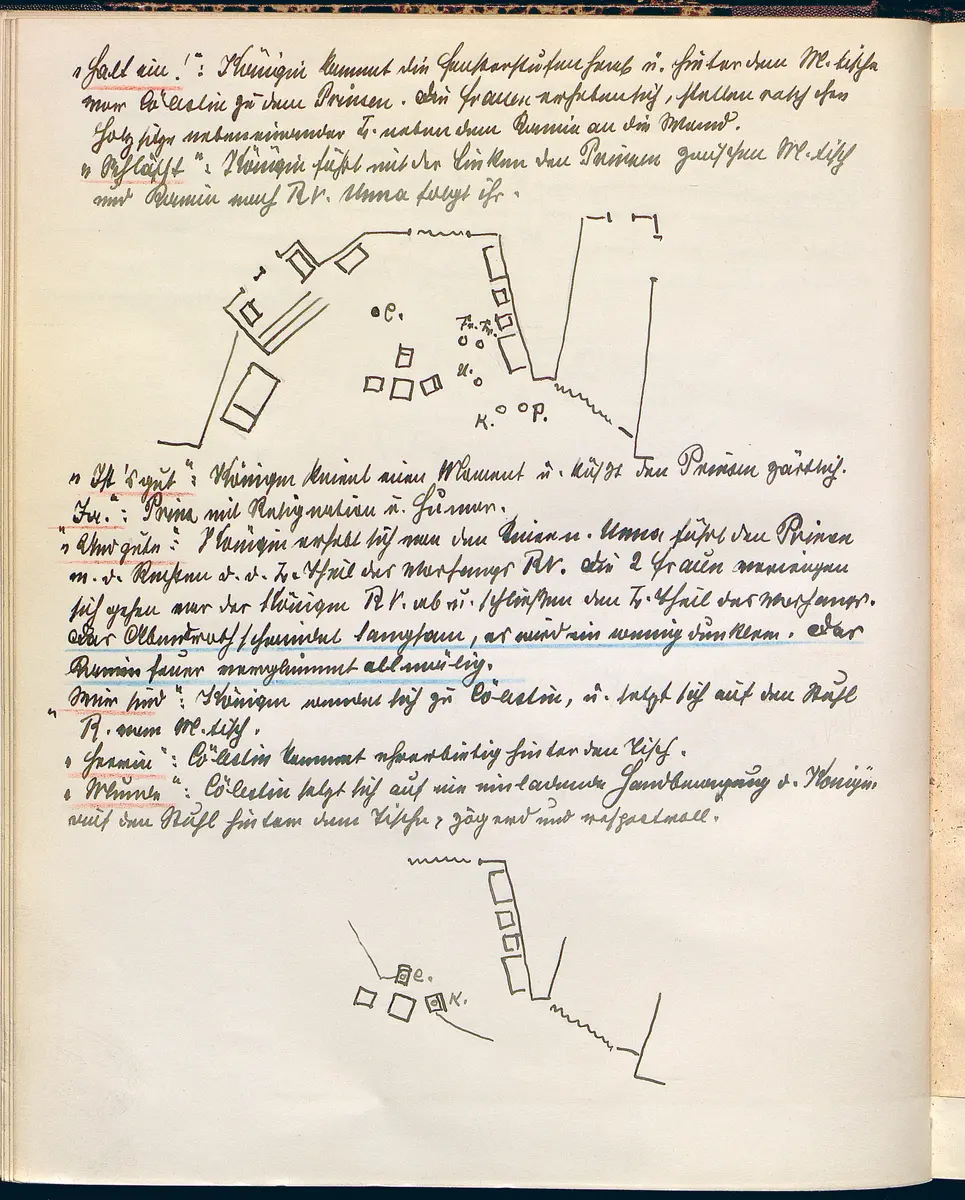 „Halt ein!“: Königin kommt die Fensterstufen herab u. hinter dem M.tische
vor Cölestin zu dem Prinzen. Die Frauen erheben sich, stellen rasch ihre
Holzsitze nebeneinander L. neben dem Kamin an die Wand.
„Schläfst“: Königin führt mit der Linken den Prinzen zwischen M.tisch
und Kamin nach RV. Anna folgt ihr.
C.
Fr. Fr.
A.
K. P.
„Ist's gut“: Königin kniet einen Moment u. küßt den Prinzen zärtlich.
„Ja.“: Prinz mit Resignation u. Humor.
„Und gute“: Königin erhebt sich von den Knieen. Anna führt den Prinzen
m. d. Rechten d. d. L. Theil des Vorhangs RV. Die 2 Frauen verneigen
sich gehen vor der Königin RV. ab u. schließen den L. Theil des Vorhangs.
Das Abendroth schwindet langsam, es wird ein wenig dunkler. Das
Kaminfeuer verglimmt allmälig.
„Wir sind“: Königin wendet sich zu Cölestin, u. setzt sich auf den Stuhl
R. vom M.tisch.
„Herrin“: Cölestin kommt ehrerbietig hinter den Tisch.
„Stunde“: Cölestin setzt sich auf eine einladende Handbewegung d. Königin
auf den Stuhl hinter dem Tische, zögernd und respectvoll.
C.
K.